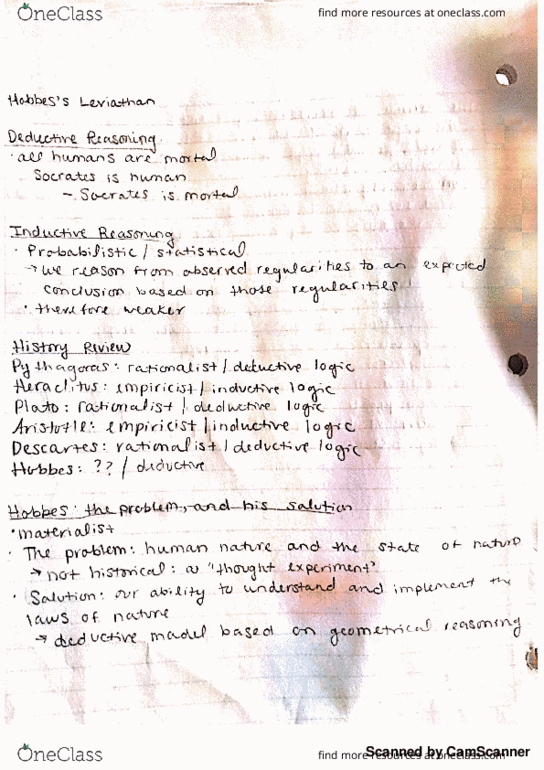 OneClass
find more resources at oneclass.com
Hobbes's Leviathan
Deductive Reasoning
· all humans are mortal
Socrates is human
– Socrates is mortal
Inductive Reasoning
· Probabilistic / statistical
→ we reason from observed regularities to an expected
conclusion based on those regularities
· therefore weaker
History Review
Pythagoras: rationalist / deductive logic
Heraclitus: empiricist / inductive logic
Plato: rationalist / deductive logic
Aristotle: empiricist / inductive logic
Descartes: rationalist / deductive logic
Hobbes: ?? / deductive
Hobbes: the problem, and his solution
· materialist
· The problem: human nature and the state of nature
→ not historical: a "thought experiment"
· Solution: our ability to understand and implement the
laws of nature
→ deductive model based on geometrical reasoning
OneClass
find more resources at oneclass.com
Scanned by CamScanner